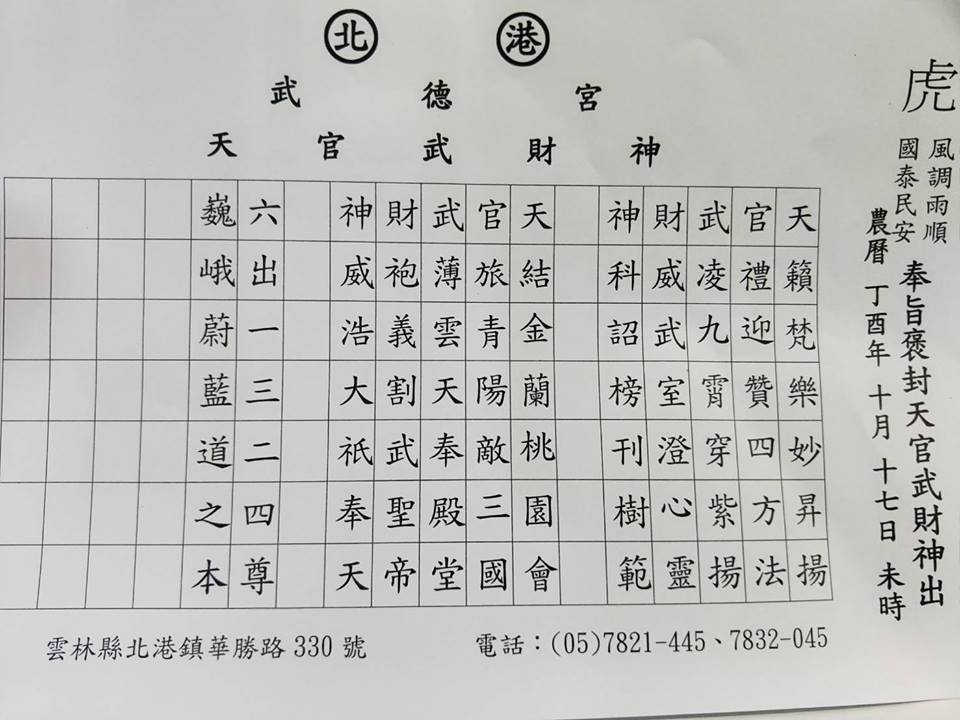 北 港
武德宮
天官武財神
虎
風調雨順
國泰民安
奉旨褒封天官武財神出
農曆 丁酉年 十月 十七日 未時
天籟梵樂妙昇揚
官禮迎贊四方法
武凌九霄穿紫揚
財威武室澄心靈
神科詔榜刊樹範
天結金蘭桃園會
官旅青陽敵三國
武薄雲天奉殿堂
財袍義割武聖帝
神威浩大祇奉天
六出一三二四尊
巍峨蔚藍道之本
雲林縣北港鎮華勝路 330 號
電話：(05)7821-445、7832-045